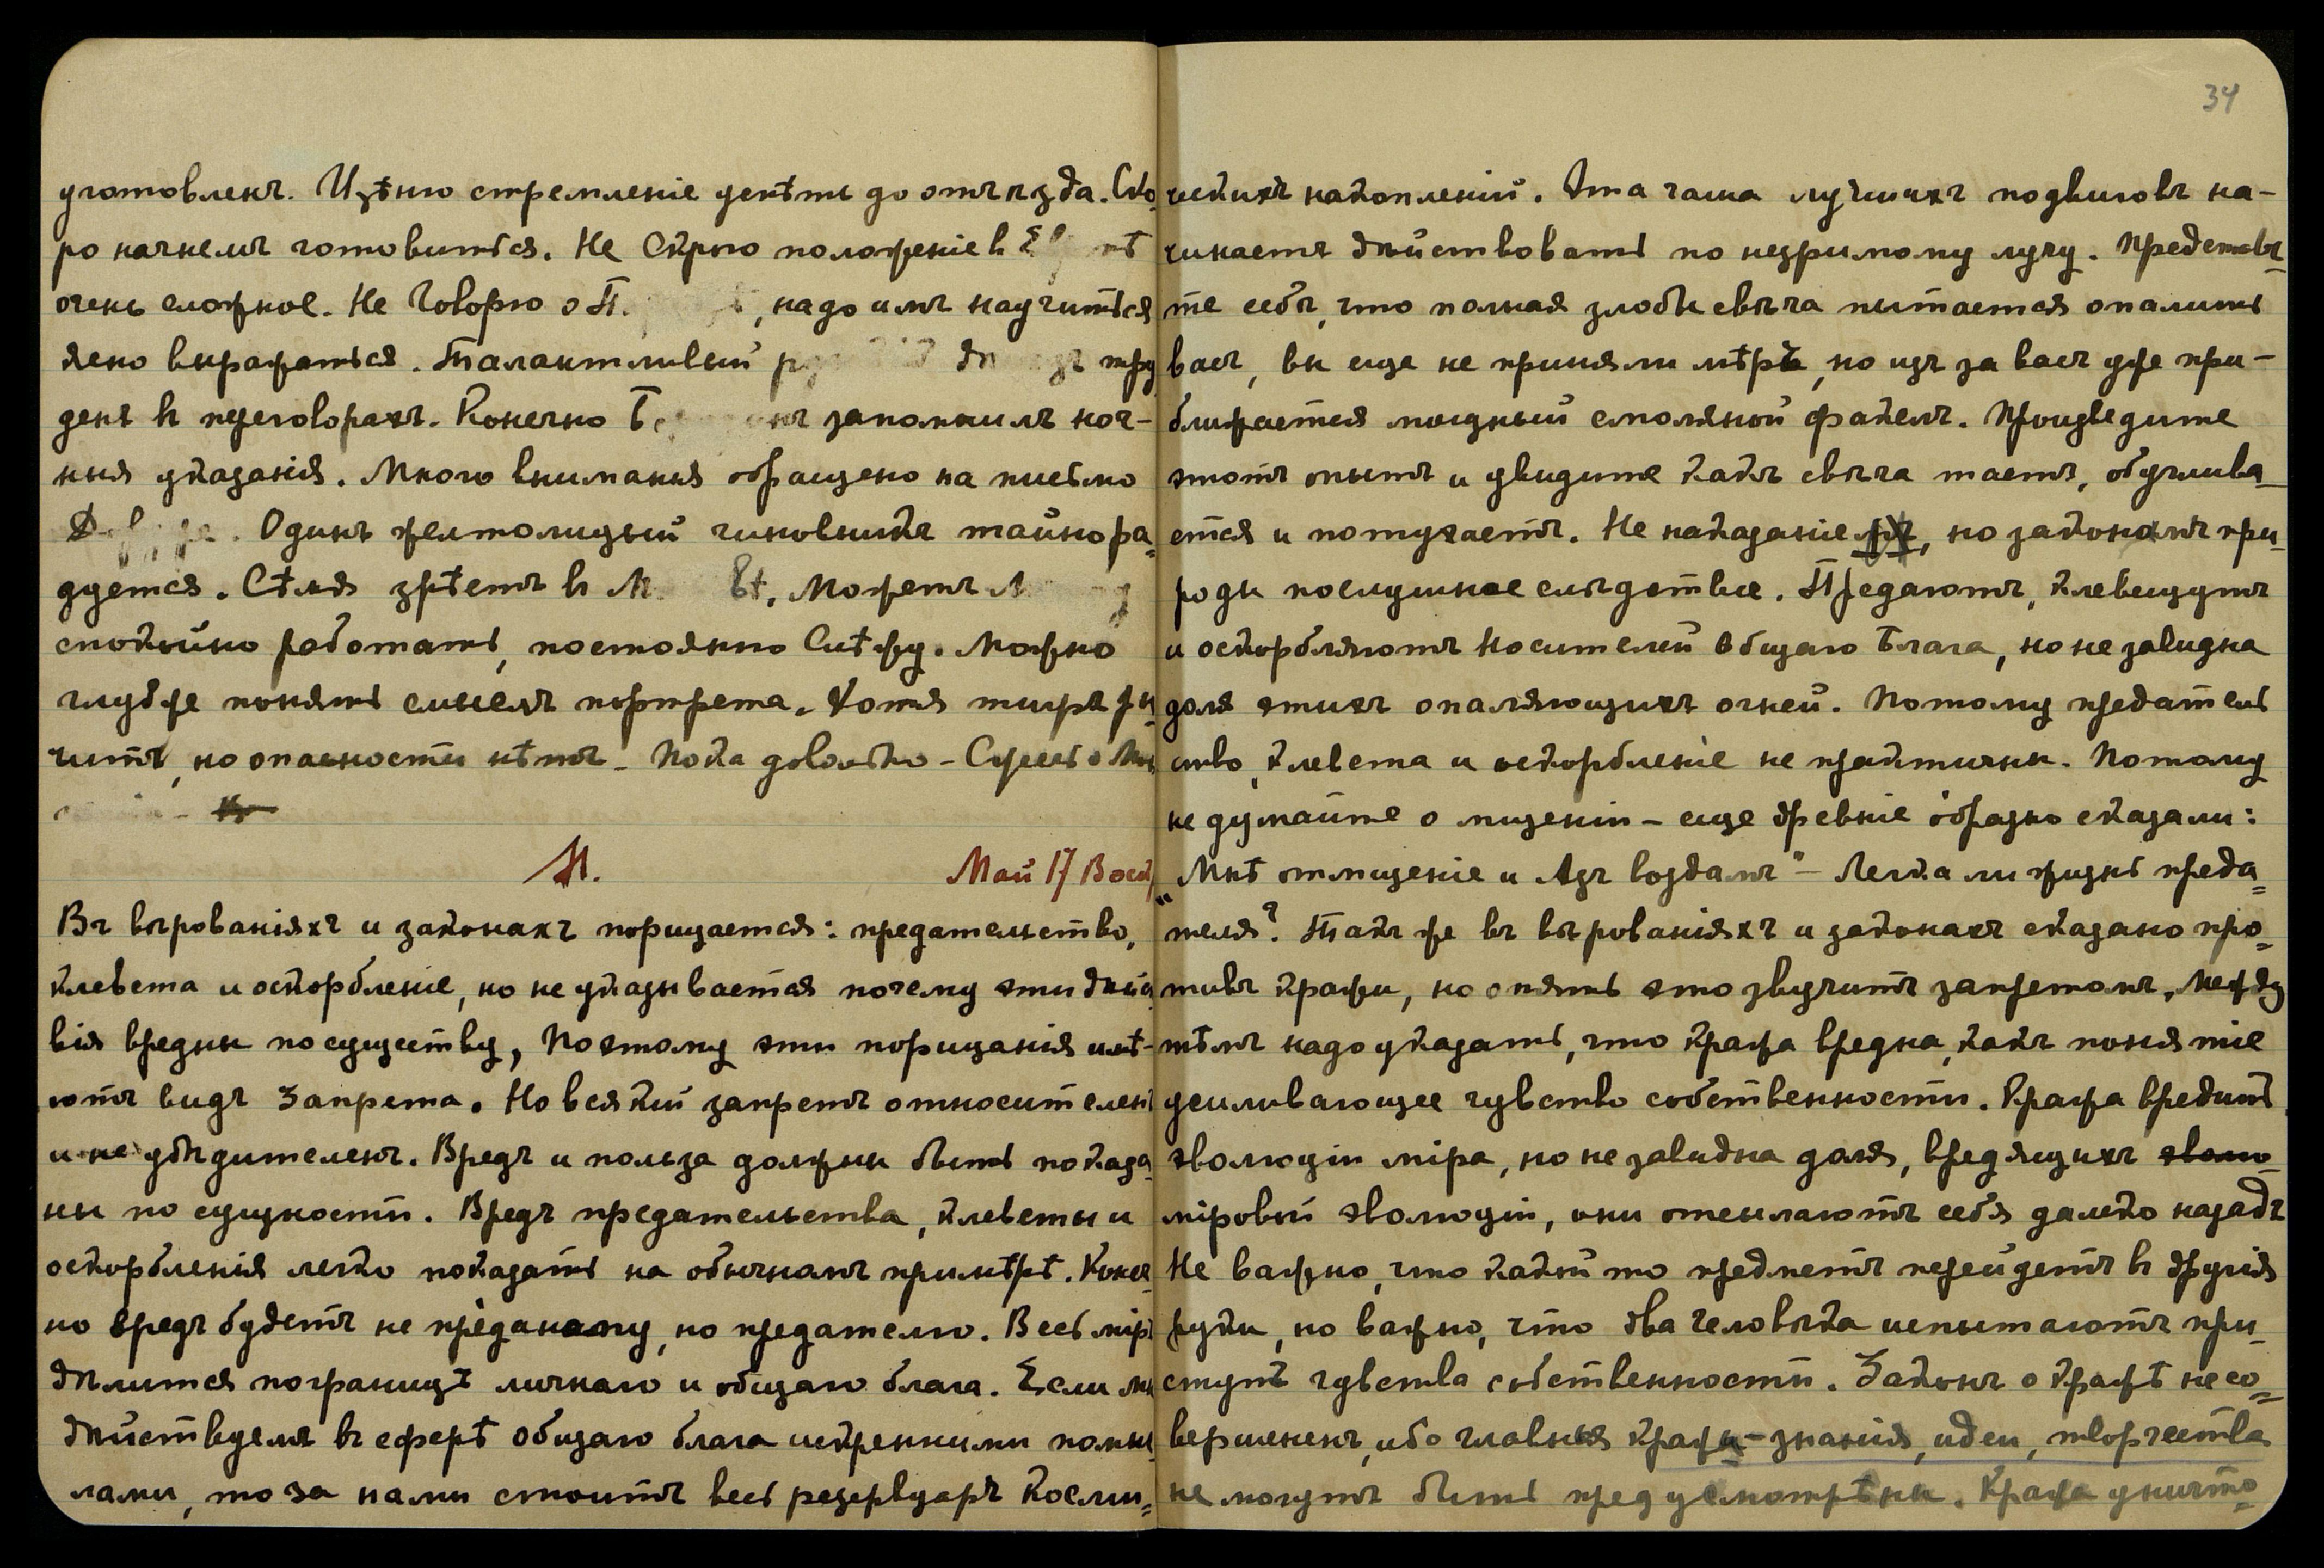 уготовленъ. Цѣню стремленіе успѣть до отъѣзда. Ско-
ро начнемъ готовиться. Не скрою положеніе в
очень сложное. Не Говорю о П. , надо имъ научиться
ясно выражаться. Талантливый тру
денъ в переговорахъ. Конечно запомнилъ ноч-
ныя указанія. Много вниманія обращено на письмо
Одинъ желтолицый чиновникъ тайно ра-
дуется. Сѣмя зрѣетъ в М вѣ. Можетъ
спокойно работать, постоянно слѣжу. Можно
глубже понять смыслъ портрета. Хотя тигръ ры
читъ, но опасности нѣтъ – Пока довольно –
М. Май 17 Воск
Въ вѣрованіяхъ и законахъ порицается: предательство,
клевета и оскорбленіе, но не указывается почему эти дѣйст
вія вредны по существу, Поэтому эти порицанія имѣ-
ютъ видъ Запрета. Но всякій запретъ относителенъ
и не убѣдителенъ. Вредъ и польза должны быть показа-
ны по сущности. Вредъ предательства, клеветы и
оскорбленія легко показать на обычномъ примѣрѣ. Конеч
но вредъ будетъ не преданному, но предателю. Весь міръ
дѣлится по границѣ личнаго и общаго блага. Если мы
дѣйствуемъ въ сферѣ общаго блага искренними помы
лами, то за нами стоитъ весь резервуаръ Косми-
34
ческихъ накопленій. Эта чаша лучшихъ подвиговъ на-
чинаетъ дѣйствовать по незримому лучу. Представь-
те себѣ, что полная злобы свѣча пытается опалить
васъ, вы еще не приняли мѣръ, но изъ за васъ уже при-
ближается мощный смоляной факелъ. Произведите
этотъ опытъ и увидите какъ свѣча таетъ, обуглива-
ется и потухаетъ. Не наказаніе, но законамъ при-
роды послушное слѣдствіе. Предаютъ, клевещутъ
и оскорбляютъ Носителей Общаго Блага, но не завидна
доля этихъ опаляющихъ огней. Потому предатель
ство, клевета и оскорбленіе не практичны. Потому
не думайте о мщеніи – еще древніе образно сказали:
"Мнѣ отмщеніе и Азъ воздамъ" – Легка ли жизнь преда-
теля? Такъ же въ вѣрованіяхъ и законахъ сказано про-
тивъ кражи, но опять это звучитъ запретомъ, Между
тѣмъ надо указать, что кража вредна, какъ понятіе
усиливающее чувство собственности. Кража вредитъ
эволюціи міра, но не завидна доля, вредящихъ эволю
міровой эволюціи, они отсылаютъ себя далеко назадъ
Не важно, что какой то предметъ перейдетъ в другія
руки, но важно, что два человѣка испытаютъ при-
ступъ чувства собственности. Законъ о кражѣ несо-
вершененъ, ибо главныя кражи – знанія, идеи, творчества
не могутъ быть предусмотрѣны. Кража уничто-